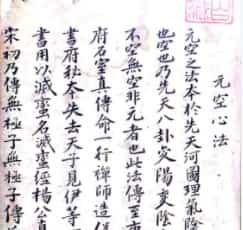 元空心法
元空之法本於先天河圖理氣陰
也空也乃先天八卦爻陽爻陰
不空無空非元者也此法傳至
府石室真傳命一行禪師造
書府秘本失去天子見伊等
書用以滅蠻名滅蠻經楊公
宋初乃傳無極子無極子傳